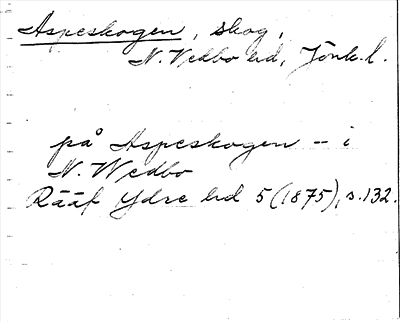 Aspeskogen, skog,
N. Vedbo hd, Jönk. l.
på Aspeskogen -- i
N. Wedbo
Rääf Ydre hd 5 (1875), s. 132.